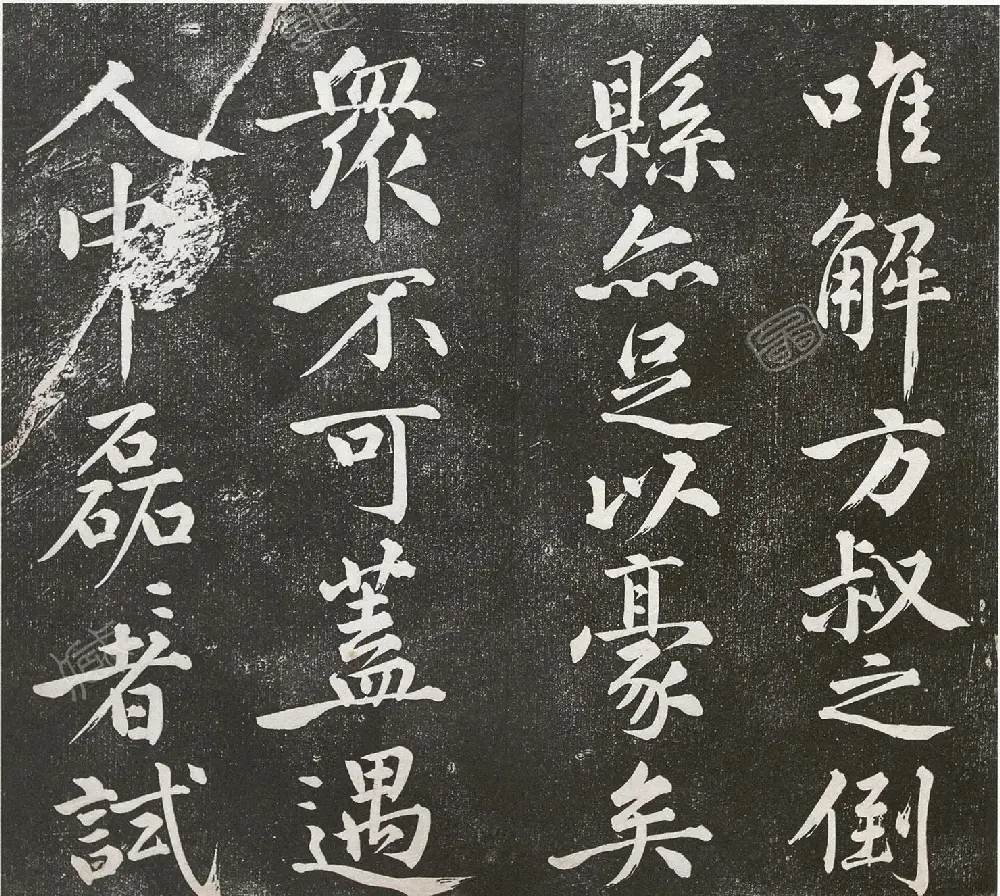 唯解方叔之倒
縣亦足以豪矣
衆不可蓋遇
人中磊〻者試